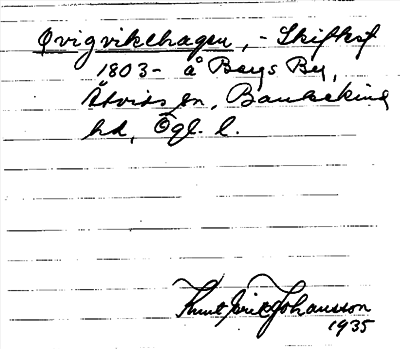 Qvigvikehagen, - Skiftkf
1803- å Bergs By,
Åtvids sn, Bankekind
hd, Ögl. l.
Knut Erik Johansson
1935